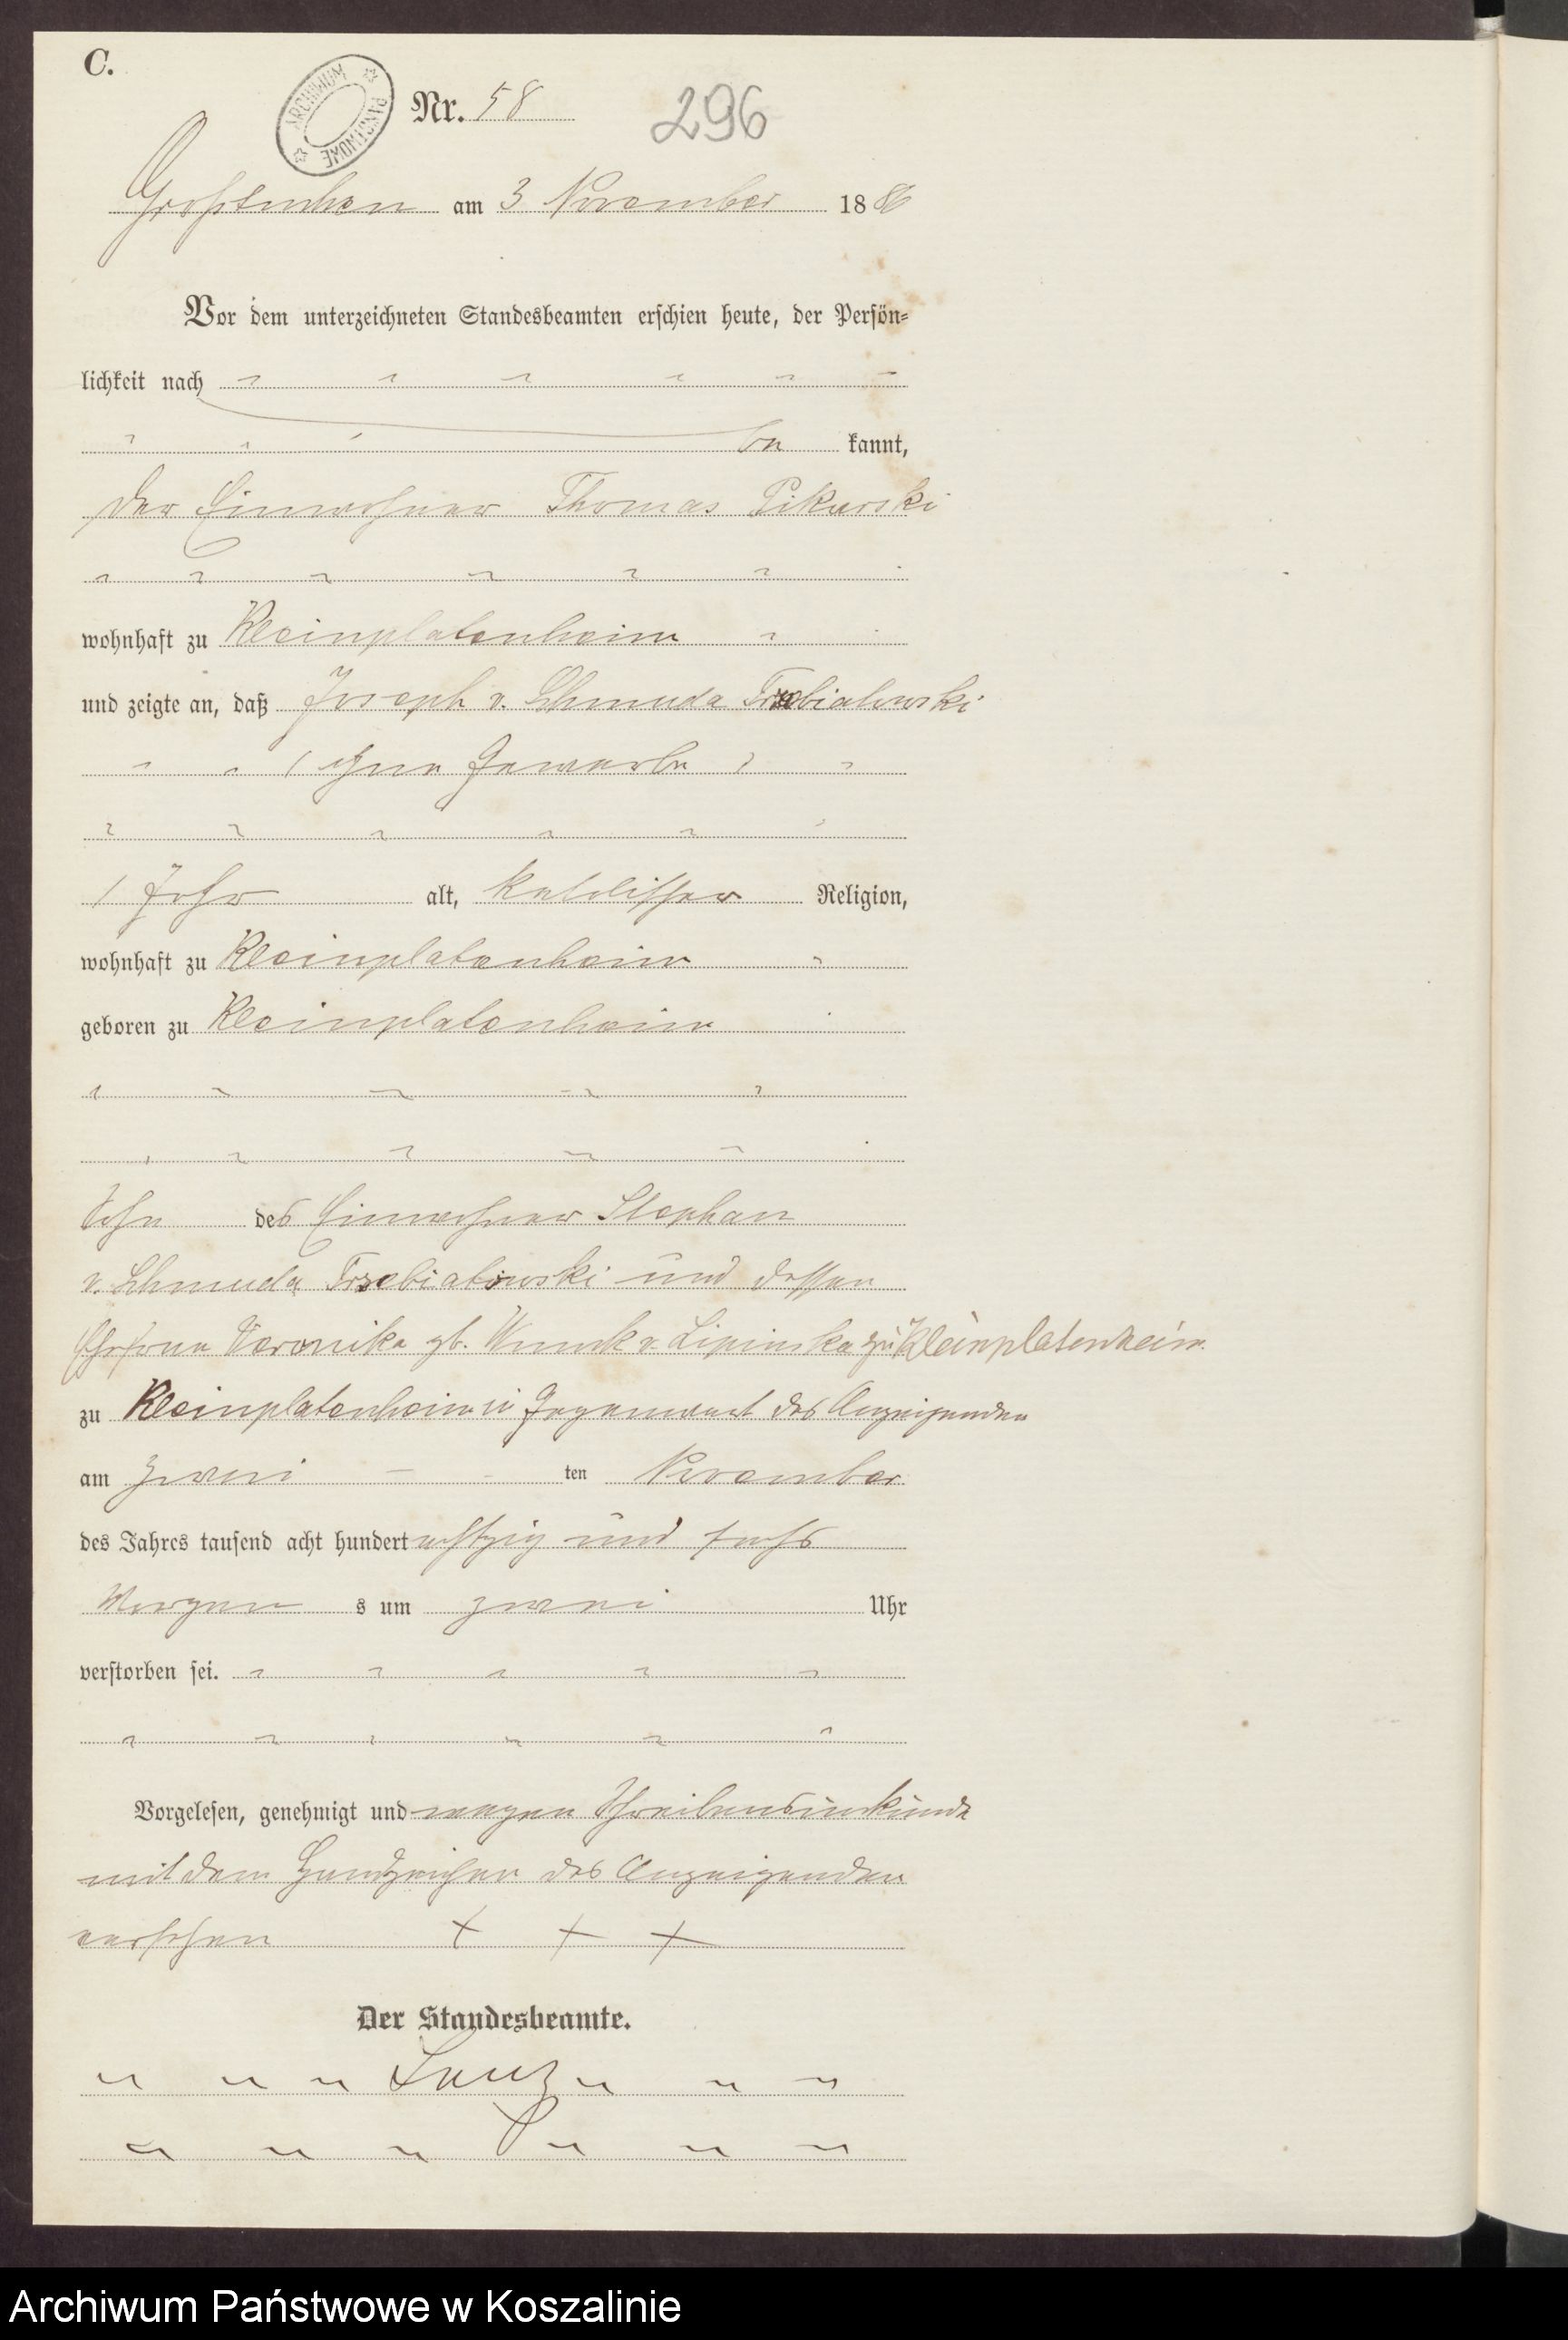 C.
ARCHIWUM PAŃSTWOWE
Nr. 58
296
Großtuchen am 3 November 1886
Vor dem unterzeichneten Standesbeamten erschien heute, der Persön-
lichkeit nach
be kannt,
der Einwohner Thomas Pikarski
wohnhaft zu Kleinplatenheim
und zeigte an, daß Joseph v. Chmuda Trzebiatowski
ohne Gewerbe
1 Jahr alt, katolischer Religion,
wohnhaft zu Kleinplatenheim
geboren zu Kleinplatenheim
Sohn des Einwohner Stephan
v. Chmuda Trzebiatowski und dessen
Ehefrau Veronika gb. v. Lipinska zu Kleinplatenheim
zu Kleinplatenheim in Gegenwart des Anzeigenden
am zwei ten November
des Jahres tausend acht hundert achtzig und sechs
Morgen s um zwei Uhr
verstorben sei.
Vorgelesen, genehmigt und wegen Schreibensunkunde
mit dem Handzeichen des Anzeigenden
versehen + + +
Der Standesbeamte.
Archiwum Państwowe w Koszalinie